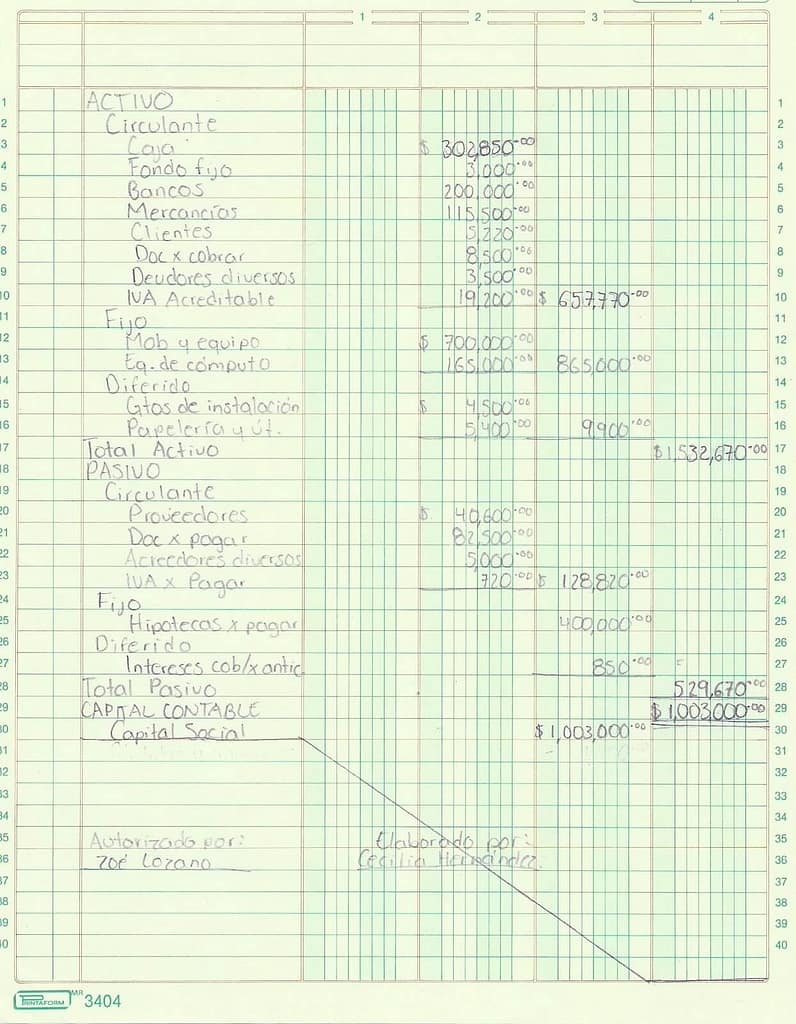 1 2 3 4
1 ACTIVO 1
2 Circulante 2
3 Caja $ 302,850.00 3
4 Fondo fijo 3,000.00 4
5 Bancos 200,000.00 5
6 Mercancías 115,500.00 6
7 Clientes 5,220.00 7
8 Doc x cobrar 8,500.00 8
9 Deudores diversos 3,500.00 9
10 IVA Acreditable 19,200.00 $ 657,770.00 10
11 Fijo 11
12 Mob y equipo $ 700,000.00 12
13 Eq. de cómputo 165,000.00 865,000.00 13
14 Diferido 14
15 Gtos de instalación $ 4,500.00 15
16 Papelería y út. 5,400.00 9,900.00 16
17 Total Activo $1,532,670.00 17
18 PASIVO 18
19 Circulante 19
20 Proveedores $ 40,600.00 20
21 Doc x pagar 82,500.00 21
22 Acreedores diversos 5,000.00 22
23 IVA x Pagar 720.00 $ 128,820.00 23
24 Fijo 24
25 Hipotecas x pagar 400,000.00 25
26 Diferido 26
27 Intereses cob/x antic. 850.00 27
28 Total Pasivo 529,670.00 28
29 CAPITAL CONTABLE $1,003,000.00 29
30 Capital Social $1,003,000.00 30
31 31
32 32
33 33
34 34
35 Autorizado por: Elaborado por: 35
36 Zoé Lozano Cecilia Hernández. 36
37 37
38 38
39 39
40 40
PRINTAFORM MR 3404